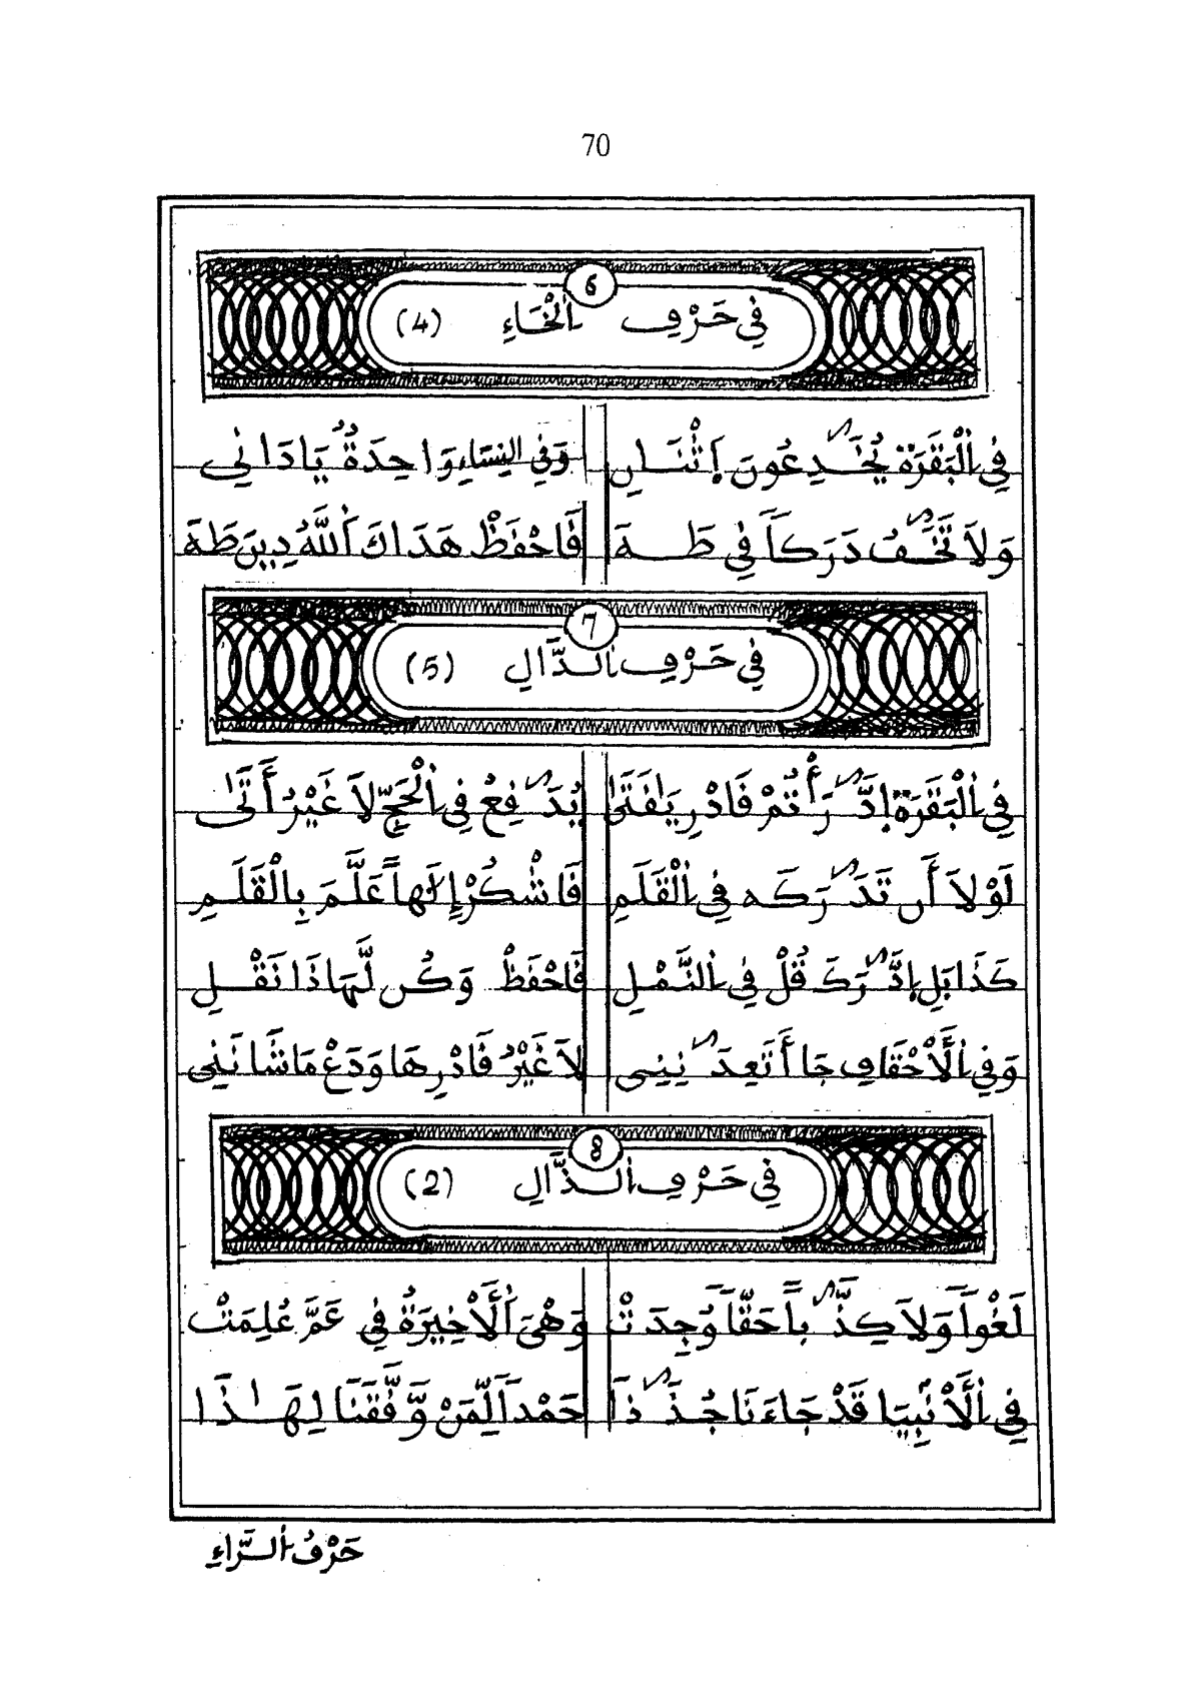 70
6
فِي حَرْفِ اَلْخَاءِ (4)
فِي اِلْبَقَرَةِ يُخَٰدِعُونَ إِثْنَانِ وَفِي النِّسَاءِ وَاحِدَةٌ يَادَانِي
وَلاَ تَخَٰفُ دَرَكاً فِي طَهَ فَاحْفَظْ هَدَاكَ اَللَّهُ دِينَ طَهَ
7
فِي حَرْفِ اَلدَّالِ (5)
فِي اِلْبَقَرَةِ إِدَّٰرَأْتُمْ فَادْرِ يَفَتَىٰ يُدَٰفِعُ فِي اِلْحَجِّ لاَ غَيْرُ أَتَىٰ
لَوْلاَ أَن تَدَٰرَكَه فِي اِلْقَلَمِ فَاشْكُرْ إِلَٰهاً عَلَّمَ بِالْقَلَمِ
كَذَا بَلِ إِدَّٰرَكَ قُلْ فِي اِلنَّمْلِ فَاحْفَظْ وَكُن لَّهَا ذَا نَقْلِ
وَفِي اِلَّأَحْقَافِ جَا أَتَعِدَٰنِنِي لاَ غَيْرُ فَادْرِهَا وَدَعْ مَا شَانَنِي
8
فِي حَرْفِ اِلذَّالِ (2)
لَغْواً وَلاَ كِذَّٰباً حَقّاً وُجِدَتْ وَهْيَ اَلَّأَخِيرَةُ فِي عَمَّ عُلِمَتْ
فِي اِلَّأَنْبِيَا قَدْ جَاءَنَا جُذَٰذاً حَمْداً لِّمَنْ وَّفَّقَنَا لِهَٰذَا
حَرْفُ اُلرَّاءِ